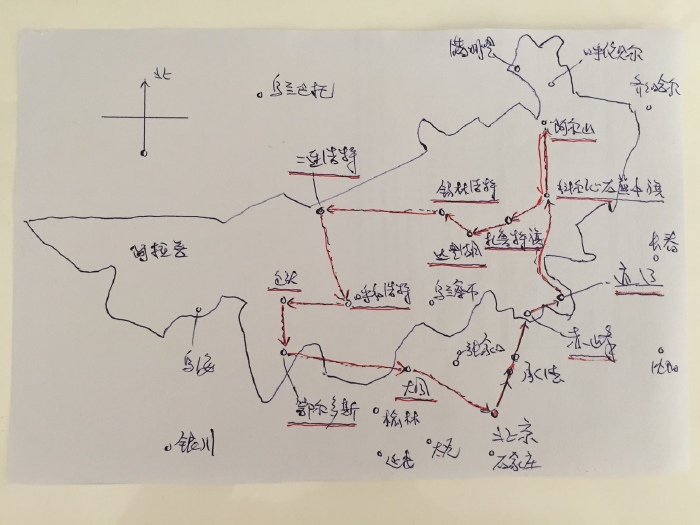 北
满洲里
呼伦贝尔
齐哈尔
乌兰巴托
阿尔山
二连浩特
锡林浩特
科尔沁右翼中旗
阿拉善
达里湖
扎鲁特旗
长春
包头
呼和浩特
乌兰察布
通辽
乌海
张家口
赤峰
沈阳
承德
鄂尔多斯
大同
榆林
北京
银川
延安
太原
石家庄